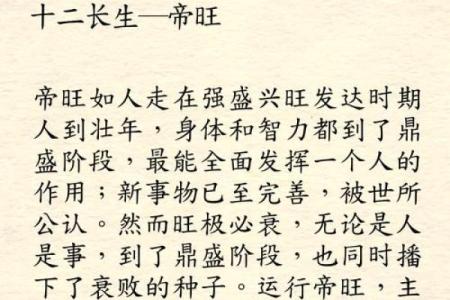 十二长生—帝旺
帝旺如人走在强盛兴旺发达时期
人到壮年，身体和智力都到了鼎
盛阶段，最能全面发挥一个人的
作用；新事物已至完善，被世所
公认。然而旺极必衰，无论是人
是事，到了鼎盛阶段，也同时播
下了衰败的种子。运行帝旺，主